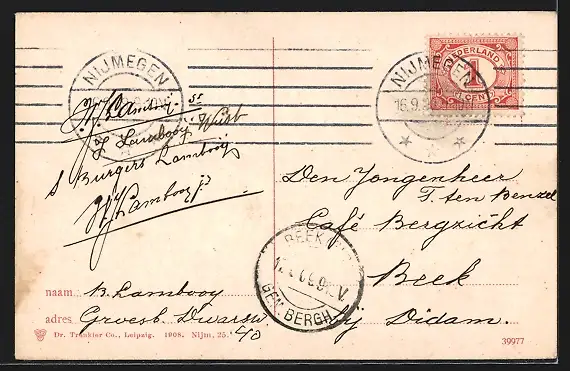 NIJMEGEN
NIJMEGEN
16.9
NEDERLAND
1
Lambooy
S Burgers Lambooy
Lambooy
Den Jongenheer
F. ten Benzel
Café Bergzicht
Beek
bij Didam.
BEEK
GEM BERGH
naam B. Lambooy
adres Groesb. Dwarsw.
Dr. Trenkler Co., Leipzig. 1908. Nijm, 25.
39977